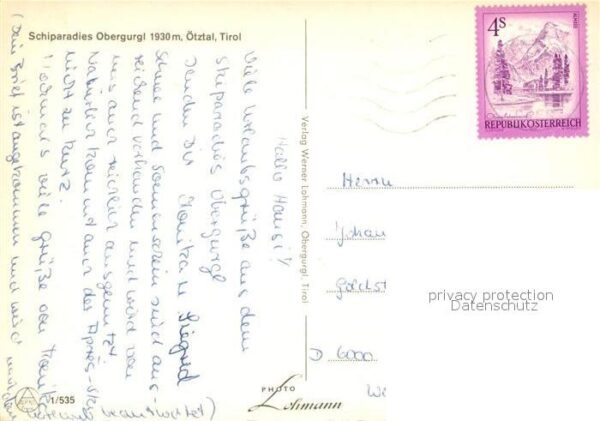 Schiparadies Obergurgl 1930m, Ötztal, Tirol
Hallo Hansi!
Viele Urlaubsgrüße aus dem
Skiparadies Obergurgl
senden Dir Monika u. Sigrid
Schnee und Sonnenschein sind aus-
reichend vorhanden und wird von
uns auch reichlich ausgenutzt
Natürlich kommt auch der Après-Ski
nicht zu kurz.
Nochmals viele Grüße von Monika
(Dein Brief ist angekommen und wird
beantwortet)
Verlag Werner Lohmann, Obergurgl, Tirol
4S
REPUBLIK ÖSTERREICH
Herrn
Johan
D 6000
privacy protection
Datenschutz
1/535
PHOTO
Lohmann